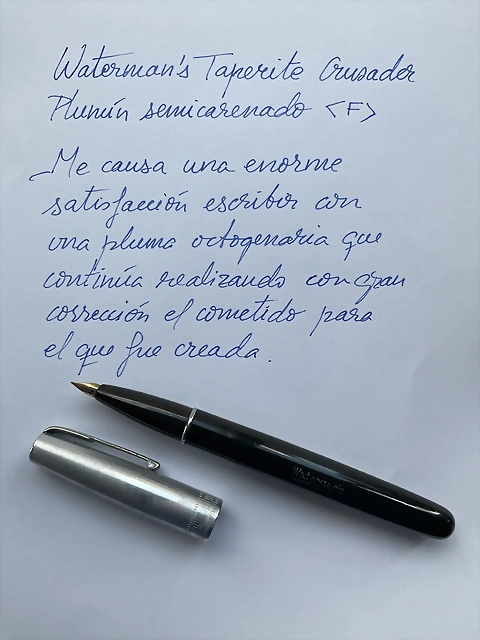 Waterman's Taperite Crusader
Plumín semicarenado <F>
Me causa una enorme
satisfacción escribir con
una pluma octogenaria que
continúa realizando con gran
corrección el cometido para
el que fue creada.
Waterman's